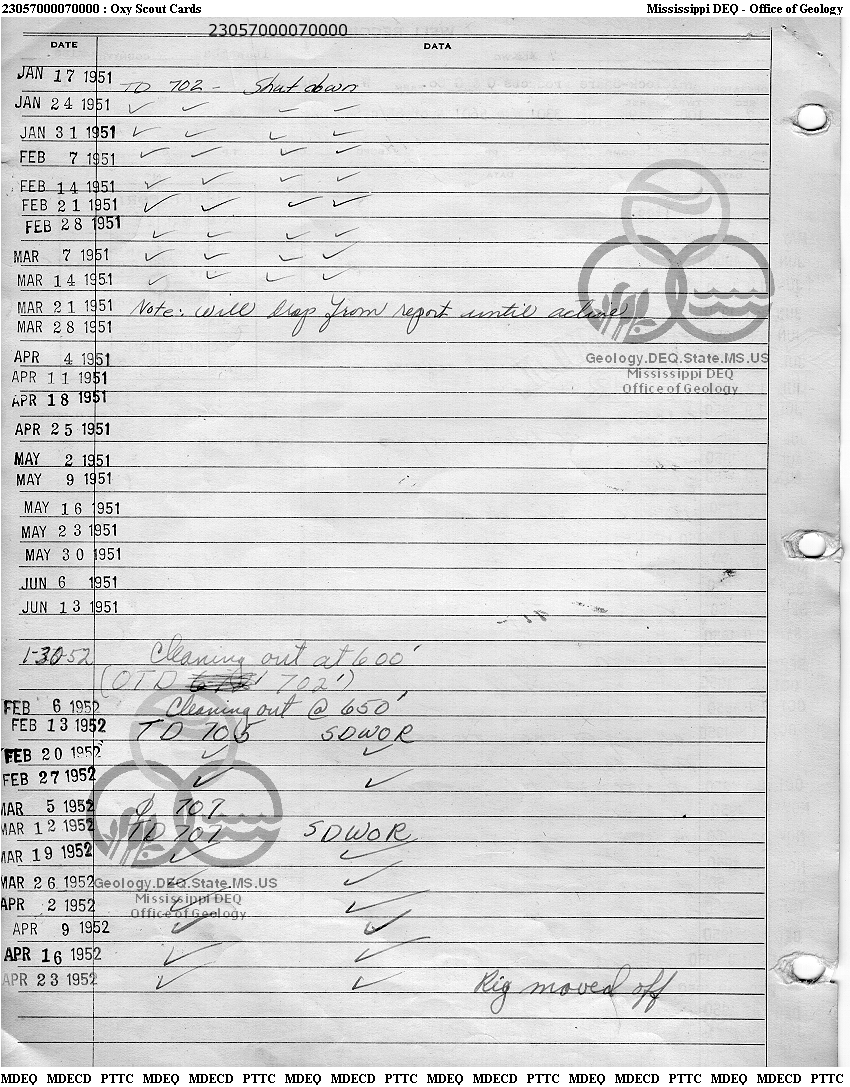 23057000070000 : Oxy Scout Cards Mississippi DEQ - Office of Geology
23057000070000
DATE DATA
JAN 17 1951 TD 702 - Shut down
JAN 24 1951 ✓ ✓ ✓ ✓
JAN 31 1951 ✓ ✓ ✓ ✓
FEB 7 1951 ✓ ✓ ✓ ✓
FEB 14 1951 ✓ ✓ ✓ ✓
FEB 21 1951 ✓ ✓ ✓ ✓
FEB 28 1951 ✓ ✓ ✓ ✓
MAR 7 1951 ✓ ✓ ✓ ✓
MAR 14 1951 ✓ ✓ ✓ ✓
MAR 21 1951 Note: will drop from report until active
MAR 28 1951
APR 4 1951
Geology.DEQ.State.MS.US
Mississippi DEQ
Office of Geology
APR 11 1951
APR 18 1951
APR 25 1951
MAY 2 1951
MAY 9 1951
MAY 16 1951
MAY 23 1951
MAY 30 1951
JUN 6 1951
JUN 13 1951
1-30-52 Cleaning out at 600'
(OTD 702')
FEB 6 1952 Cleaning out @ 650'
FEB 13 1952 TD 705 SDWOR
FEB 20 1952 ✓ ✓
FEB 27 1952 ✓ ✓
MAR 5 1952 707
MAR 12 1952 TD 707 SDWOR
MAR 19 1952 ✓ ✓
MAR 26 1952 ✓ ✓
Geology.DEQ.State.MS.US
Mississippi DEQ
Office of Geology
APR 2 1952 ✓ ✓
APR 9 1952 ✓ ✓
APR 16 1952 ✓ ✓
APR 23 1952 ✓ ✓ Rig moved off
MDEQ MDECD PTTC MDEQ MDECD PTTC MDEQ MDECD PTTC MDEQ MDECD PTTC MDEQ MDECD PTTC MDEQ MDECD PTTC